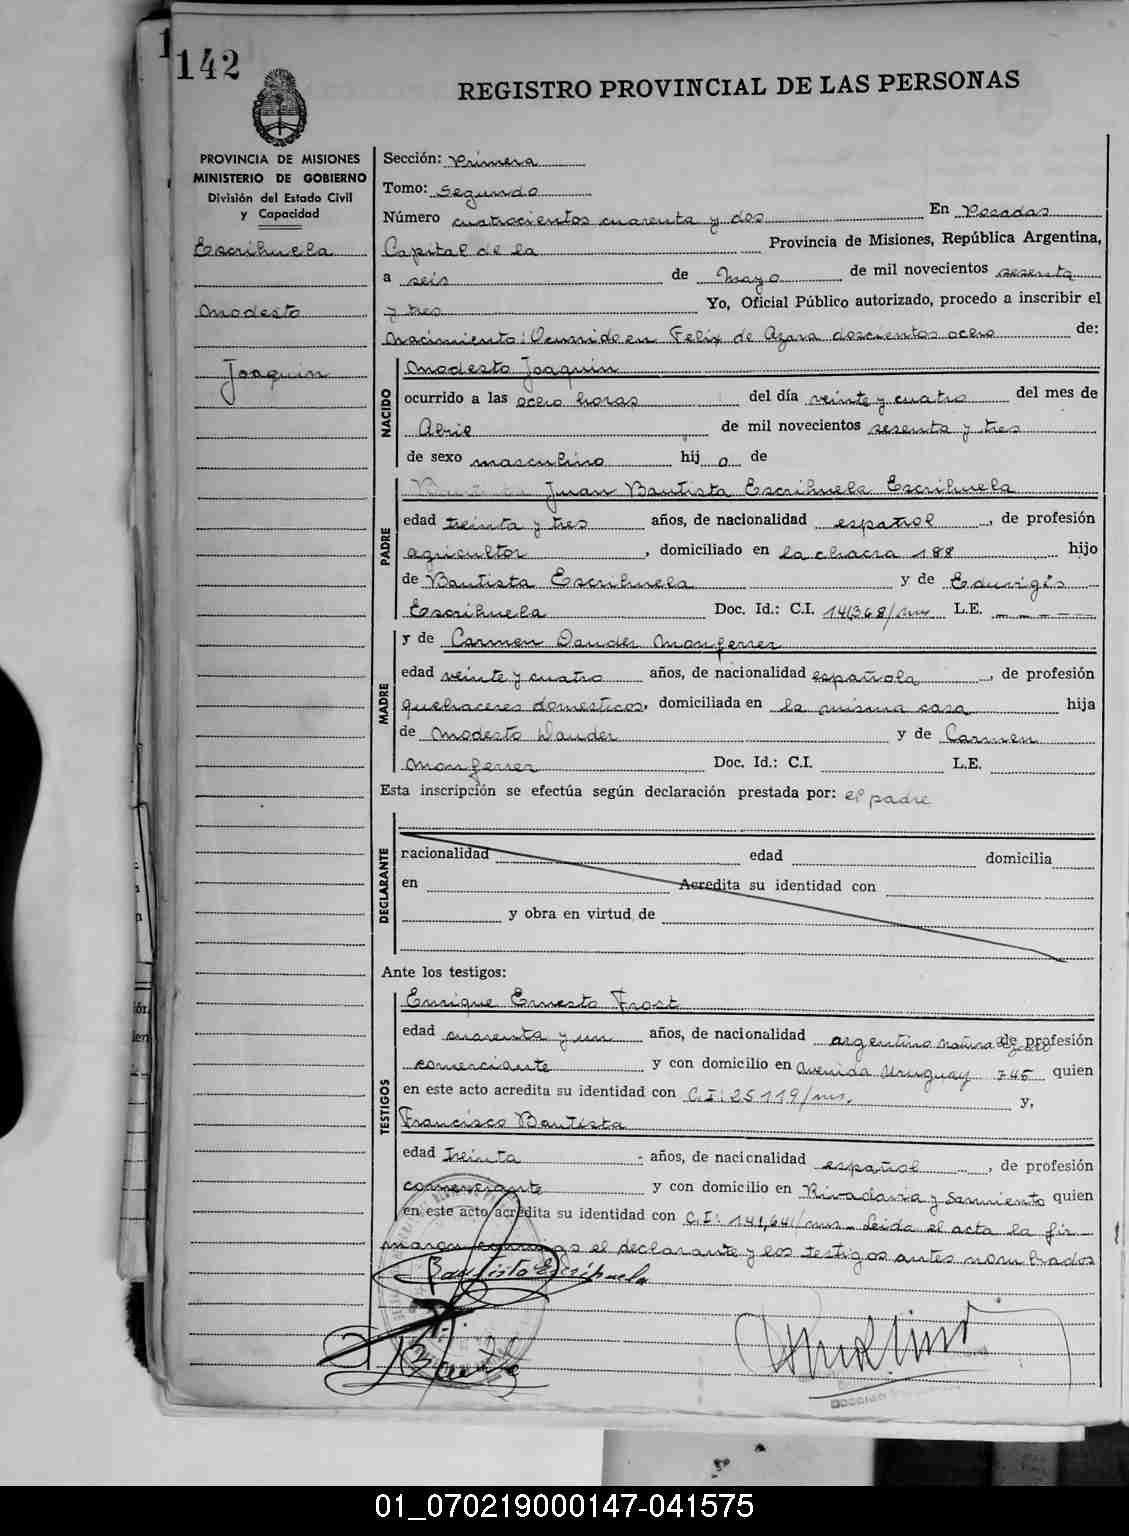 142
REGISTRO PROVINCIAL DE LAS PERSONAS
PROVINCIA DE MISIONES
MINISTERIO DE GOBIERNO
División del Estado Civil
y Capacidad
Escrihuela
Modesto
Joaquin
Sección: Primera
Tomo: Segundo
Número cuatrocientos cuarenta y dos En Posadas
Capital de la Provincia de Misiones, República Argentina,
a seis de Mayo de mil novecientos sesenta
y tres Yo, Oficial Público autorizado, procedo a inscribir el
Nacimiento: Ocurrido en Felix de Azara doscientos ocho de:
NACIDO
Modesto Joaquin
ocurrido a las ocho horas del día veinte y cuatro del mes de
Abril de mil novecientos sesenta y tres
de sexo masculino hij o de
PADRE
Juan Bautista Escrihuela Escrihuela
edad treinta y tres años, de nacionalidad español, de profesión
agricultor, domiciliado en la chacra 188 hijo
de Bautista Escrihuela y de Eduvigis
Escrihuela Doc. Id.: C.I. 141368/mns L.E. — — — — —
MADRE
y de Carmen Dauder Monferrer
edad veinte y cuatro años, de nacionalidad española, de profesión
quehaceres domesticos, domiciliada en la misma casa hija
de Modesto Dauder y de Carmen
Monferrer Doc. Id.: C.I. L.E.
Esta inscripción se efectúa según declaración prestada por: el padre
DECLARANTE
nacionalidad edad domicilia
en Acredita su identidad con
y obra en virtud de
Ante los testigos:
TESTIGOS
Enrique Ernesto Frost
edad cuarenta y un años, de nacionalidad argentino de profesión
comerciante y con domicilio en Avenida Uruguay 745 quien
en este acto acredita su identidad con C.I: 25119/mns. y,
Francisco Bautista
edad treinta años, de nacionalidad español, de profesión
comerciante y con domicilio en Rivadavia y Sarmiento quien
en este acto acredita su identidad con C.I: 141,641/mns_ Leida el acta la fir_
man conmigo el declarante y los testigos antes nombrados
Bautista Escrihuela
01_070219000147-041575